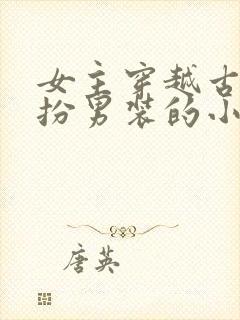 女主穿越古
扮男装的小
唐英